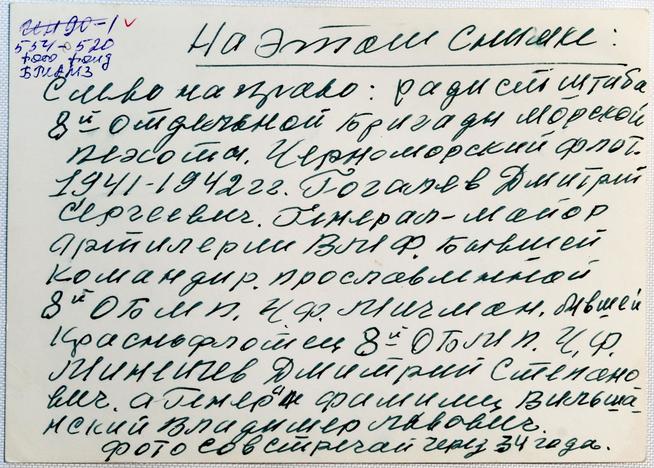 554-520
фото фонд
На этом снимке:
Слево на право: радист штаба
8й отдельной бригады морской
пехоты. Черноморский флот.
1941-1942гг. Гогалев Дмитрий
Сергеевич. Генерал-майор
артилерии ВМФ. Бывшей
командир. прославленной
8й ОБМП. ЧФ. Мичман. бывшей
Краснофлотец 8й ОБМП. Ч.Ф.
Минеичев Дмитрий Степано
вич. а Генер фамилиц Вильша-
нский Владимер Львович.
фото со встречай через 34 года.